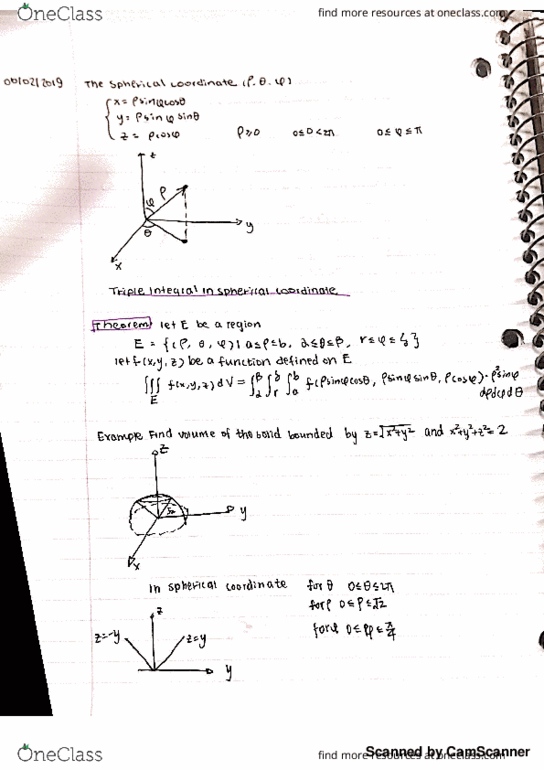 OneClass
find more resources at oneclass.com
06/02/2019 The Spherical Coordinate (ρ. θ. φ)
x = ρsinφcosθ
y = ρsinφ sinθ
z = ρcosφ ρ≥0 0≤θ<2π 0≤φ≤π
z
φ ρ
y
θ
x
Triple Integral in spherical coordinate
Theorem let E be a region
E = {(ρ, θ, φ) | a≤ρ≤b, α≤θ≤β, r≤φ≤δ}
let f(x,y,z) be a function defined on E
∭E f(x,y,z)dV = ∫αβ ∫rδ ∫ab f(ρsinφcosθ, ρsinφsinθ, ρcosφ)·ρ²sinφ
dρdφdθ
Example Find volume of the solid bounded by z=√x²+y² and x²+y²+z²=2
z
y
x
In spherical coordinate for θ 0≤θ≤2π
for ρ 0≤ρ≤√2
z
z=-y z=y for φ 0≤φ≤π/4
y
OneClass
find more resources at oneclass.com
Scanned by CamScanner